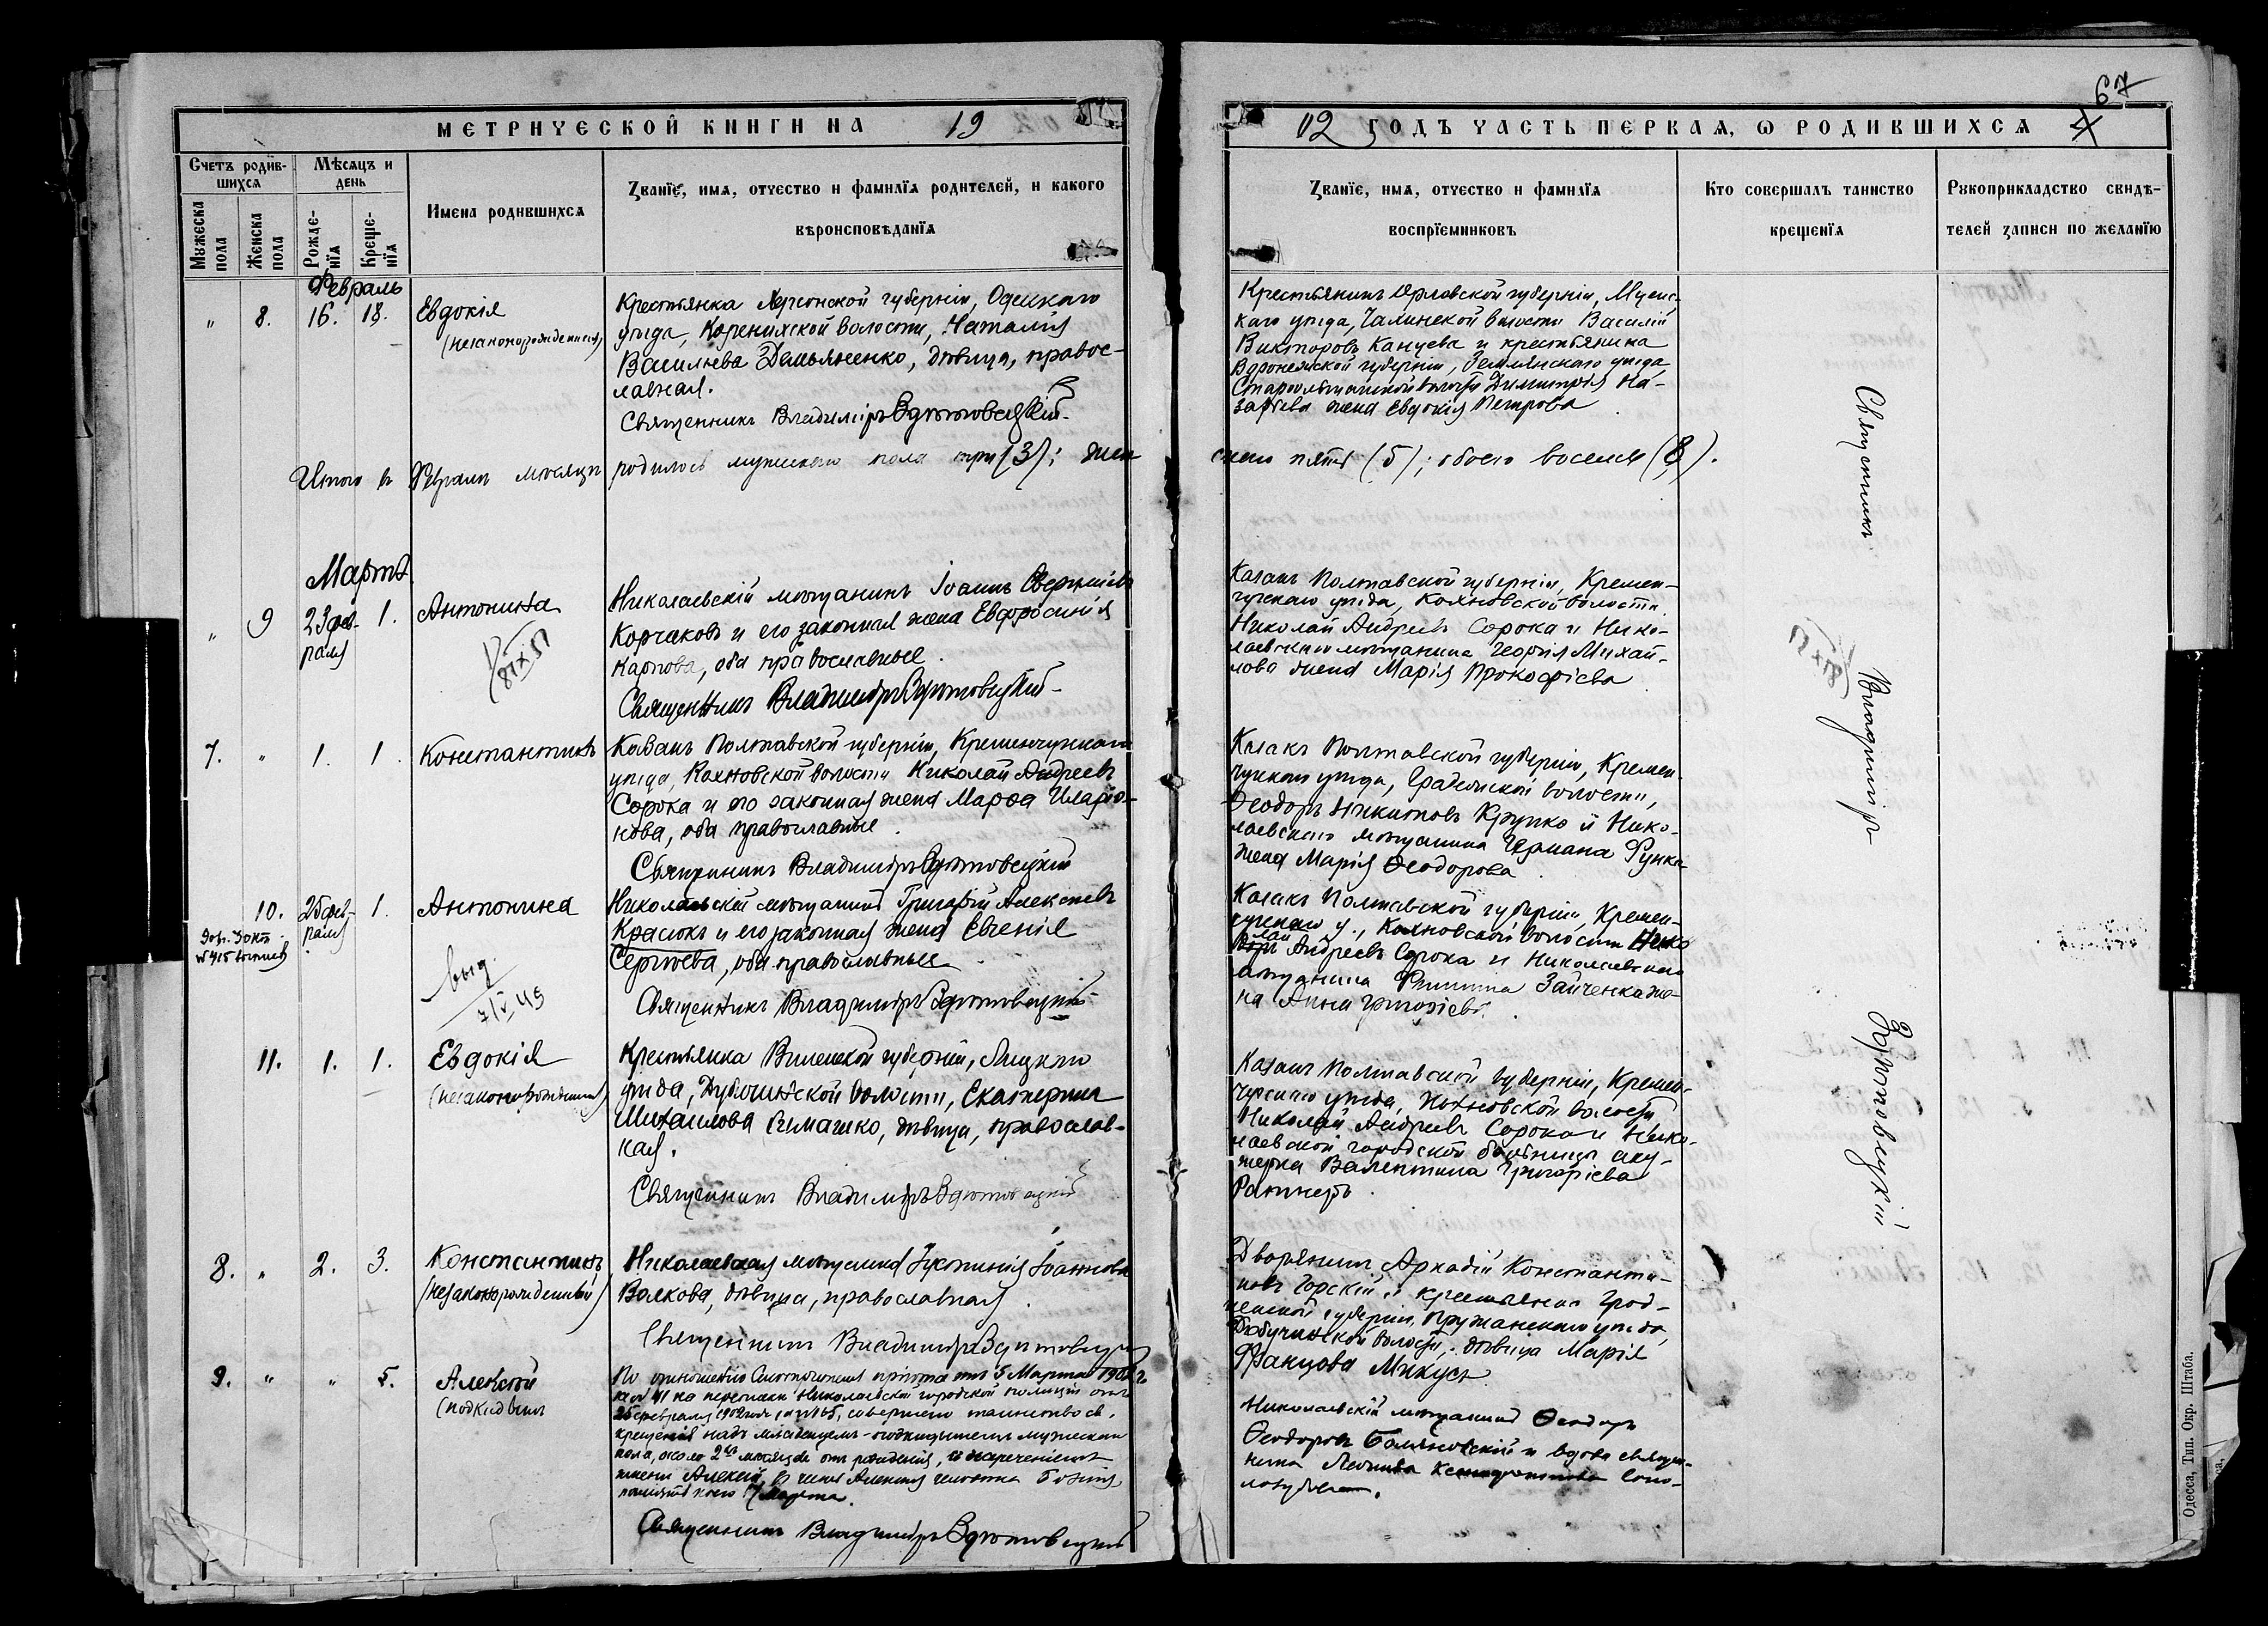 67
МЕТРИЧЕСКОЙ КНИГИ НА 19
02 ГОДЪ ЧАСТЬ ПЕРВАЯ, Ѡ РОДИВШИХСЯ
Счетъ родив-
шихся
Мужеска
пола
Женска
пола
Мѣсяцъ и
день
Рожде-
нїя
Креще-
нїя
Имена родившихся
Званїе, имя, отчество и фамилїя родителей, и какого
вѣроисповѣданїя
Званїе, имя, отчество и фамилїя
воспрїемниковъ
Кто совершалъ таинство
крещенїя
Рукоприкладство свидѣ-
телей записи по желанїю
Февраль
" 8. 16. 18. Евдокія
(незаконорожденная)
Крестьянка Херсонской губерніи, Одесскаго
уѣзда, Коренихской волости, Наталія
Васильева Демьяненко, дѣвица, правос-
лавная.
Священникъ Владиміръ
Крестьянинъ Орловской губерніи, Мценс-
каго уѣзда, волости Василій
Викторовъ Канцева и крестьянина
Воронежской губерніи, Землянскаго уѣзда,
волости Димитрія На-
зарьева жена Евдокія Петрова
Итого въ Февралѣ мѣсяцѣ родилось мужескаго пола три (3); жен
скаго пять (5); обоего восемь (8).
Мартъ
" 9 23 фев-
раля
1. Антонина
Николаевскій мѣщанинъ Іоаннъ
Корчаковъ и его законная жена Евфросинія
Карпова, оба православные.
Священникъ Владиміръ
Казакъ Полтавской губерніи, Кремен-
чугскаго уѣзда, Кохновской волости
Николай Андреевъ Сорока и Нико-
лаевскаго мѣщанина Георгія Михай-
лова жена Марія Прокофіева
7. " 1. 1. Константинъ
Казакъ Полтавской губерніи, Кременчугскаго
уѣзда, Кохновской волости Николай Андреевъ
Сорока и его законная жена Марѳа Иларіо-
нова, оба православные.
Священникъ Владиміръ
Казакъ Полтавской губерніи, Кремен-
чугскаго уѣзда, Градижской волости,
Ѳеодоръ Никитовъ Крупко и Нико-
лаевскаго мѣщанина Германа
жена Марія Ѳеодорова
10. 25 фев-
раля
1. Антонина
выд.
Николаевскій мѣщанинъ Григорій Алексѣевъ
Красюкъ и его законная жена Евгенія
Сергѣева, оба православные
Священникъ Владиміръ
Казакъ Полтавской губерніи, Кремен-
чугскаго у., Кохновской волости Нико
лай Андреевъ Сорока и Николаевскаго
мѣщанина Филиппа Зайченка же-
на Анна Григоріева.
11. 1. 1. Евдокія
(незаконорожденная)
Крестьянка Виленской губерніи, Лидскаго
уѣзда, волости, Екатерина
Михаилова Симашко, дѣвица, православ-
ная.
Священникъ Владиміръ
Казакъ Полтавской губерніи, Кремен-
чугскаго уѣзда, Кохновской волости
Николай Андреевъ Сорока и Нико-
лаевской городской больницы аку-
шерка Валентина Григоріева
8. " 2. 3. Константинъ
(незаконорожденный)
Николаевская мѣщанка Іустинія Іоаннова
Волкова, дѣвица, православная.
Священникъ Владиміръ
Дворянинъ Аркадій Константи-
новъ Горскій и крестьянка Грод-
ненской губерніи, Пружанскаго уѣзда,
волости, дѣвица Марія
Францова Микусь
9. " " 5. Алексѣй
(подкидышъ
По отношенію причта отъ 5 Марта 1902 г.
за № 41 Николаевской городской полиціи отъ
25 февраля 1902 года, совершено таинство св.
крещенія надъ младенцемъ-подкидышемъ мужескаго
пола, около 2хъ мѣсяцевъ отъ рожденія, и нареченіемъ
имени Алексѣй, въ честь Алексія человѣка Божія,
память коего 17 Марта.
Священникъ Владиміръ
Николаевскій мѣщанинъ Ѳеодоръ
Ѳеодоровъ и вдова священ-
ника
Священникъ
Владиміръ
Одесса, Тип. Окр. Штаба.